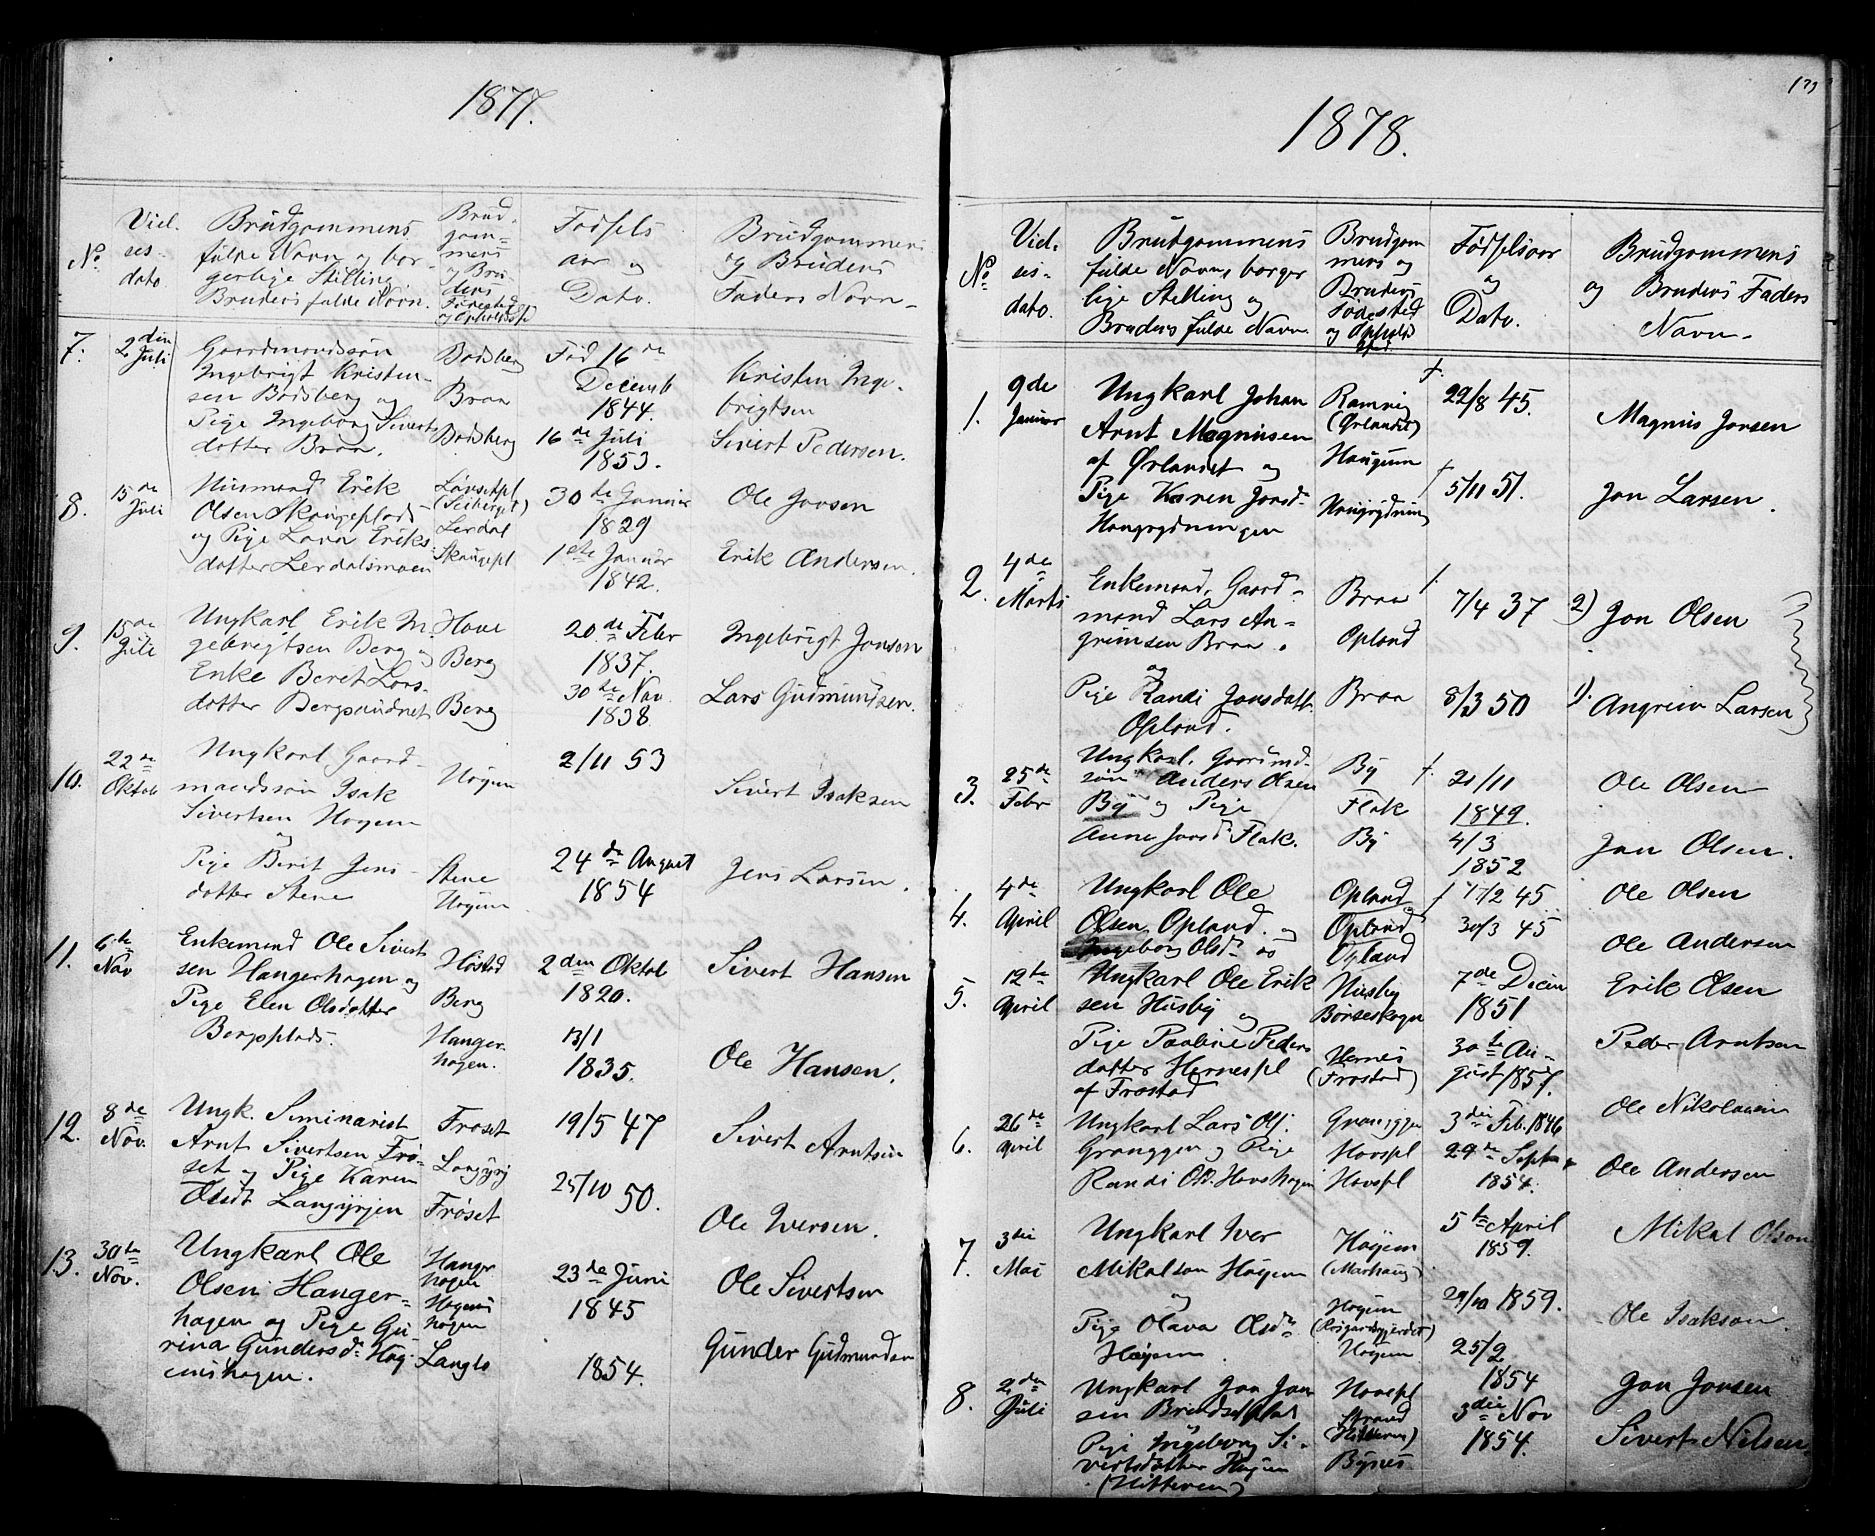 1877.
No.
Viel-
ses-
dato
Brudgommens
fulde Navn og bor-
gerlige Stilling.
Brudens fulde Navn.
Brud-
gom-
mens
og Bru-
dens
Fødested
og Opholdssd
Fødsels
aar og
Dato.
Brudgommens
og Brudens
Faders Navn-
7.
2den
Juli
Gaardmandssøn
Ingebrigt Kristen-
sen Bodsberg og
Pige Ingeborg Siverts
datter Braa.
Bodsberg
Braa
Bodsberg
Fød 16de
Decemb
1844.
16de Juli
1853.
Kristen Inge-
brigtsen
Sivert Pedersen.
8.
15de
Juli
Husmand Erik
Olsen Skaugeplads
og Pige Lava Eriks
datter Lerdalsmoen
Lerdal
Skaugepl
30te Januar
1829
1ste Januar
1842.
Ole Jonsen
Erik Andersen.
9.
15de
Juli
Ungkarl Erik In-
gebrigtsen Berg og
Enke Beret Lars-
datter Bergsundnet
Hove
Berg
Berg
20de Febr
1837.
30te Nov
1838.
Ingebrigt Jonsen
Lars Gudmundsen.
10.
22de
Oktob
Ungkarl Gaard-
mandssøn Isak
Sivertsen Hogem
og
Pige Berit Jens-
datter Stene
Hogem
Stene
Hogem
2/11 53
24de August
1854
Sivert Isaksen
Jens Larsen.
11.
6te
Nov
Enkemand Ole Sivert
sen Hangerhagen og
Pige Elen Olsdatter
Bergsplads.
Høstad
Berg
Hanger-
hagen.
2den Oktob
1820.
13/1
1835.
Sivert Hansen
Ole Hansen.
12.
8de
Nov.
Ungk. Seminarist
Arnt Sivertsen Frø-
set og Pige Karen
Olsdt Langørjen
Frøset
Langørj
Frøset
19/5 47
25/10 50.
Sivert Arntsen
Ole Iversen.
13.
30te
Nov.
Ungkarl Ole
Olsen Hanger-
hagen og Pige Gu-
rina Gundersd. Hog-
emshagen.
Hanger
hagen
Hogems
hagen
Langlo
23de Juni
1845
1854.
Ole Sivertsen
Gunder Gudmundsen
1878.
No
Viel-
ses-
dato.
Brudgommens
fulde Navn, borger
lige Stilling og
Brudens fulde Navn.
Brudgom
mens og
Brudens
Fødested
og Opholds
sted
Fødselsaar
og
Dato.
Brudgommens
og Brudens Faders
Navn-
1.
9de
Januar
Ungkarl Johan
Arnt Magnusen
af Ørlandet og
Pige Karen Jonsd.
Haugrydnin
gen
(Ørlandet)
Haugum
Haugrydnin
22/8 45.
5/11 51.
Magnus Jonsen
Jon Larsen.
2.
4de
Marts
Enkemand, Gaard-
mand Lars An-
grimsen Braa.
og
Pige Randi Jonsdatt.
Opland.
Braa
Opland
Braa
7/4 37
8/3 50
2) Jon Olsen
1). Angrim Larsen
3.
25de
Febr
Ungkarl, Gaardmd-
søn Anders Olsen
By og Pige
Anne Jonsd. Flak.
By
Flak
By
21/11
1849.
4/3
1852
Ole Olsen
Jon Olsen.
4.
4de
April
Ungkarl Ole
Olsen Opland. og
Ingeborg Olsd. as
Opland
Opland
Opland
17/2 45
30/3 45
Ole Olsen
Ole Andersen
5.
12te
April
Ungkarl Ole Erik
sen Husby og
Pige Pauline Peders
datter Hernespl
af Frostad
Husby
Børseskogn
Hernes
(Frostad)
7de Decem
1851
30te Au-
gust 1857.
Erik Olsen
Peder Arntsen
6.
26de
April
Ungkarl Lars Ols.
Granggen og Pige
Randi Old. Hovshagen
Granggen
Hovspl
Hovspl
3die Feb. 1846
29de Septbr
1854.
Ole Nikolaisen
Ole Andersen
7.
3die
Mai
Ungkarl Iver
Mikalsen Hogem
og
Pige Olava Olsd.
Hogem.
Hogem
(Marhaug)
Hogem
Hogem
5te April
1859.
29/10 1859.
Mikal Olsen
Ole Isaksen.
8.
2den
Juli
Ungkarl Jon Jon
sen Bredselplad
Pige Ingeborg Si-
vertsdatter Hogem
(Hitteren)
Hovspl
Strand
(Hitteren)
Bynes
25/2
1854
3die Nov
1854.
Jon Jonsen
Sivert Nilsen